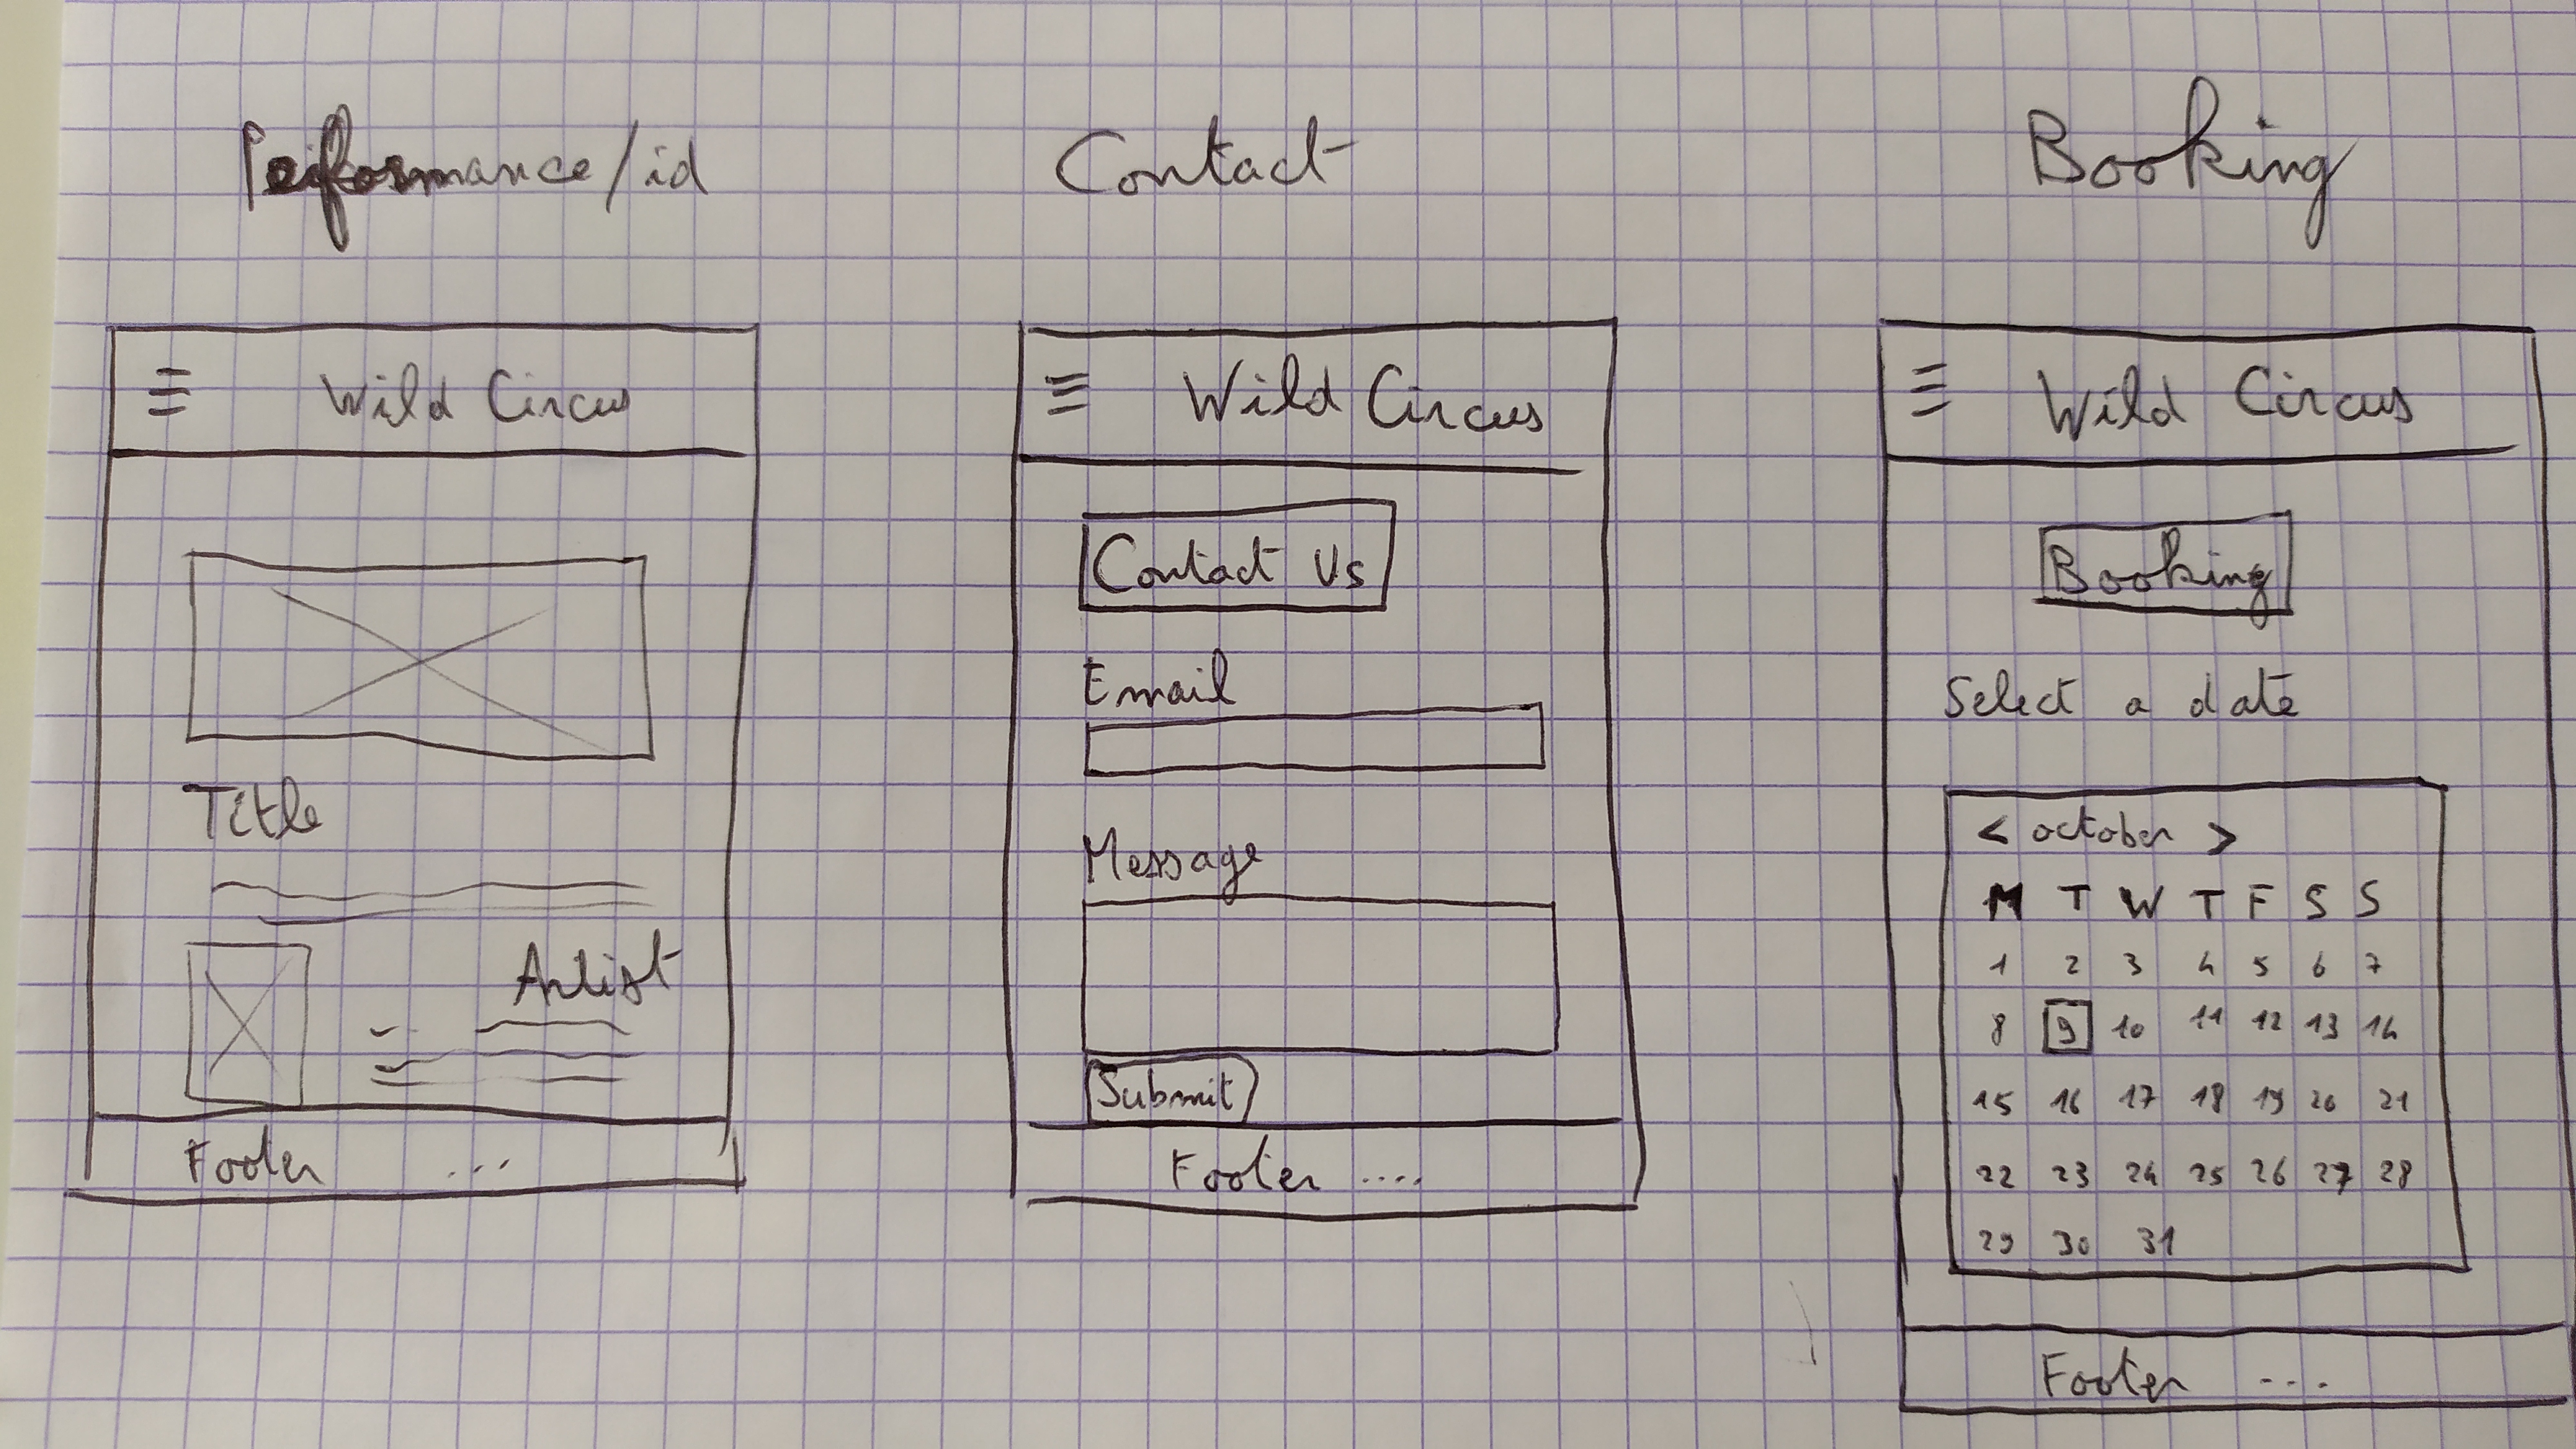 Performance/id
Wild Circus
Title
Artist
Footer ...
Contact
Wild Circus
Contact Us
Email
Message
Submit
Footer ....
Booking
Wild Circus
Booking
Select a date
< october >
M T W T F S S
1 2 3 4 5 6 7
8 9 10 11 12 13 14
15 16 17 18 19 20 21
22 23 24 25 26 27 28
29 30 31
Footer ...